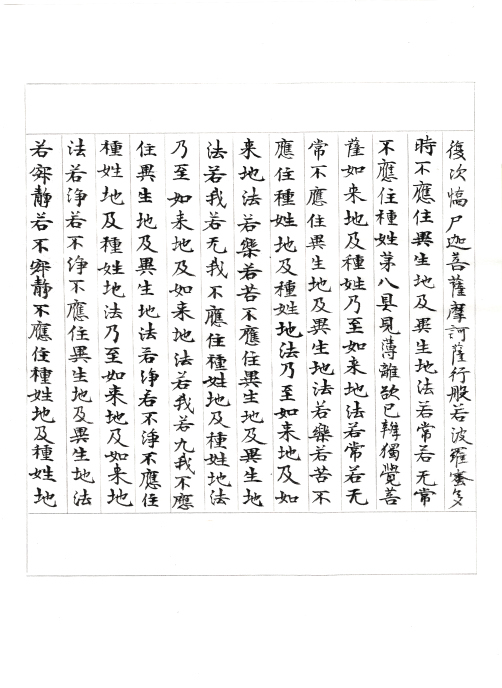 復次憍尸迦菩薩摩訶薩行般若波羅蜜多
時不應住異生地及異生地法若常若无常
不應住種姓第八具見薄離欲已辦獨覺菩
薩如来地及種姓乃至如来地法若常若无
常不應住異生地及異生地法若樂若苦不
應住種姓地及種姓地法乃至如来地及如
来地法若樂若苦不應住異生地及異生地
法若我若无我不應住種姓地及種姓地法
乃至如来地及如来地法若我若九我不應
住異生地及異生地法若浄若不浄不應住
種姓地及種姓地法乃至如来地及如来地
法若浄若不浄不應住異生地及異生地法
若寂静若不寂静不應住種姓地及種姓地